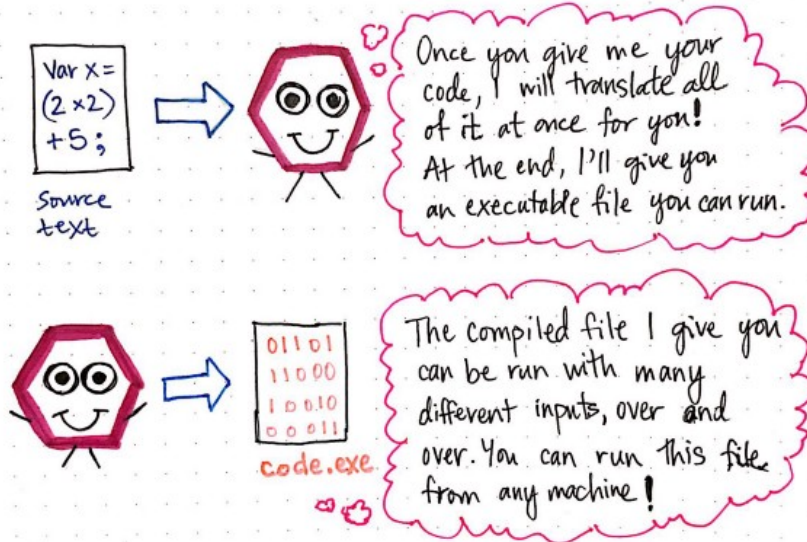 Var x =
(2 x 2)
+ 5 ;
source
text
Once you give me your
code, I will translate all
of it at once for you!
At the end, I'll give you
an executable file you can run.
01101
11000
10010
00011
code.exe
The compiled file I give you
can be run with many
different inputs, over and
over. You can run this file
from any machine!